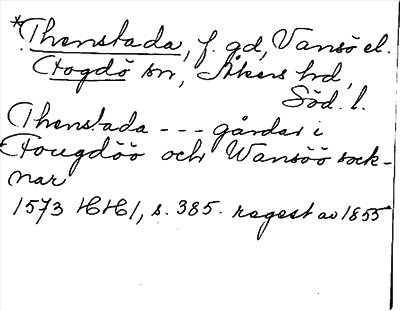 *Thenstada, f. gd, Vansö el.
Fogdö sn, Åkers hd,
Söd. l.
Thenstada --- gårdar i
Fougdöö och Wansöö sock-
nar
1573 HH1, s. 385. regest av 1855